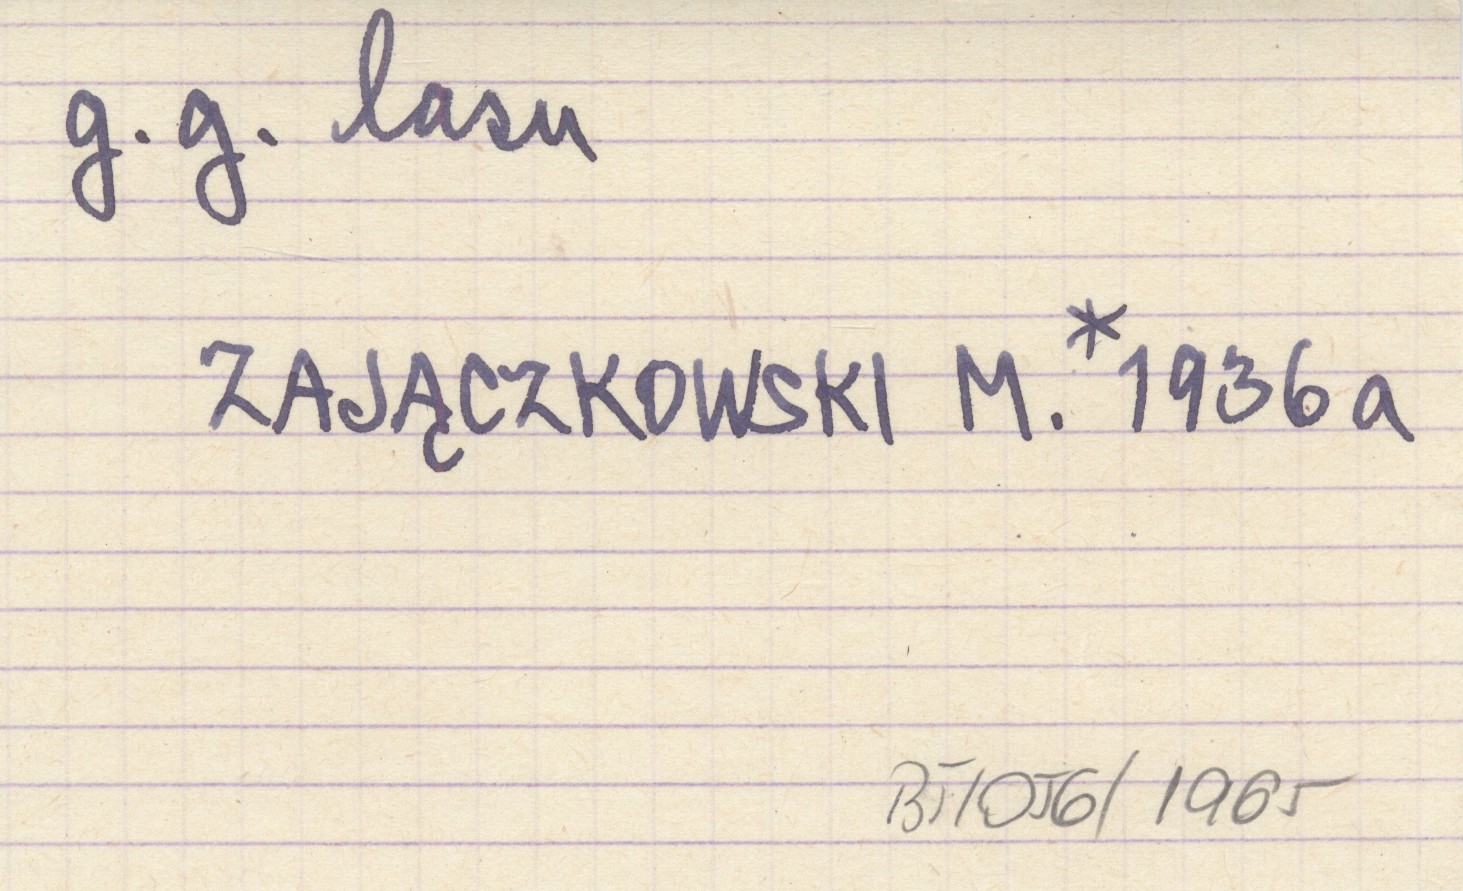 g. g. lasu
ZAJĄCZKOWSKI M.* 1936a
/ 1965